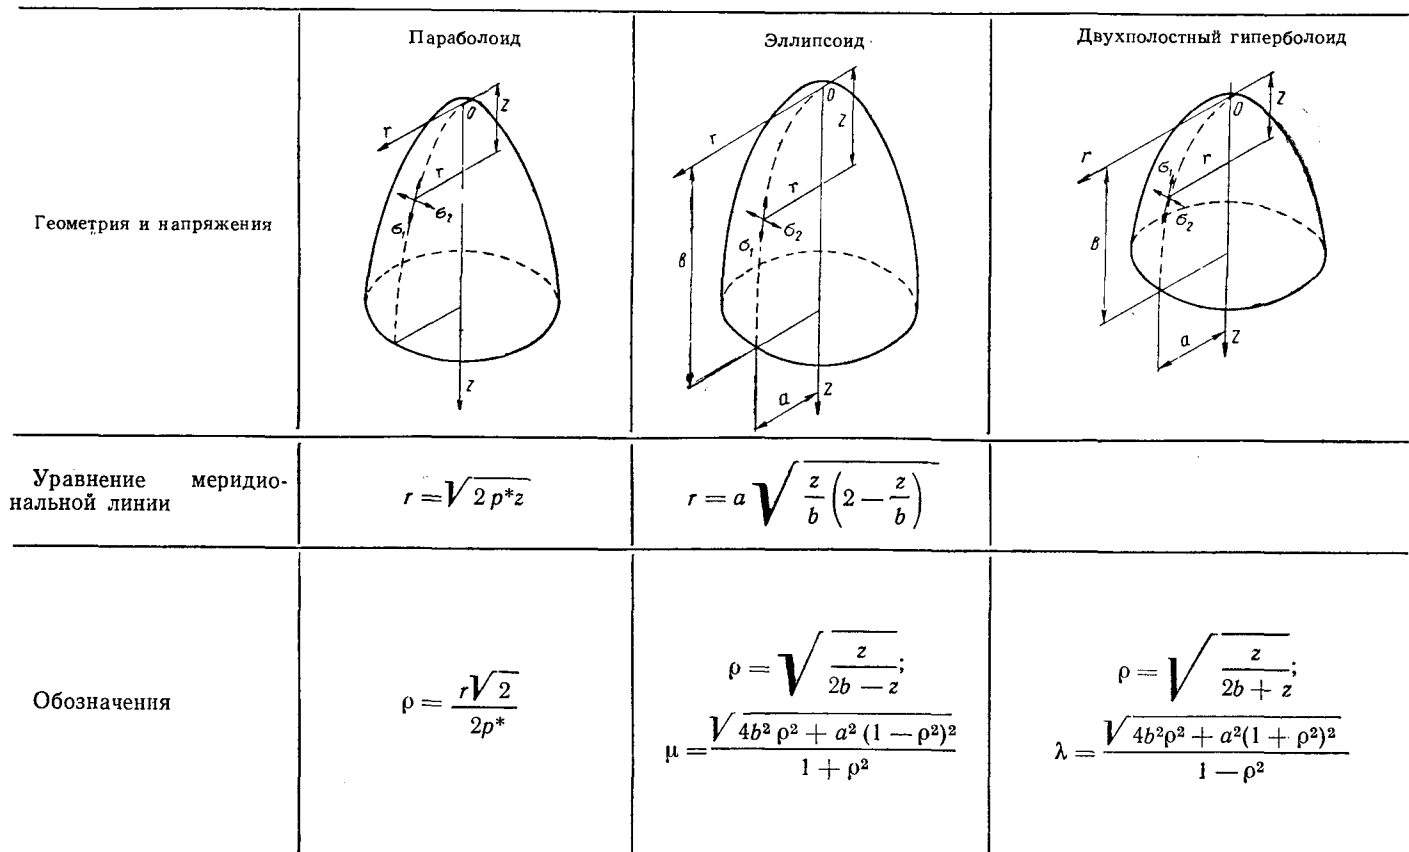 Параболоид
Эллипсоид
Двухполостный гиперболоид
Геометрия и напряжения
r
0
z
r
σ₁
σ₂
z
r
0
z
r
σ₁
σ₂
в
a
z
r
0
z
r
σ₁
σ₂
в
a
z
Уравнение меридио-
нальной линии
r = √(2 p*z)
r = a √(z/b (2 − z/b))
Обозначения
ρ = r√2 / 2p*
ρ = √(z / (2b − z));
μ = √(4b² ρ² + a² (1 − ρ²)²) / (1 + ρ²)
ρ = √(z / (2b + z));
λ = √(4b²ρ² + a²(1 + ρ²)²) / (1 − ρ²)